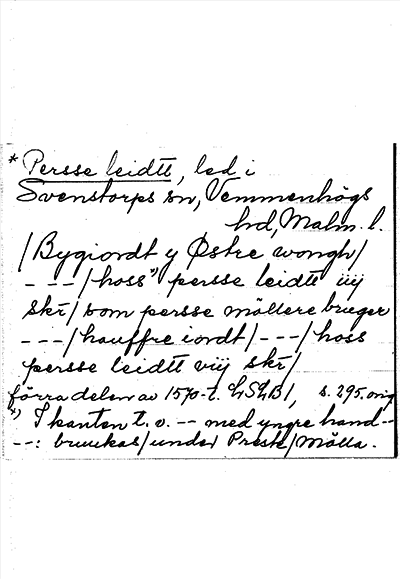 * Persse leidtt, led i
Svenstorps sn, Vemmenhögs
hd, Malm. l.
/Bygiordt y Østre wongh/
- - -/hoss") persse leidtt iiij
skr/ som persse möllere bruger
- - -/hauffre iordt/- - -/hoss
persse leidtt viij skr/
förra delen av 1570-t. LSLB1, s. 295. orig
") I kanten t. v. -- med yngre hand --
--: bruukas/under Preste/Mölla.